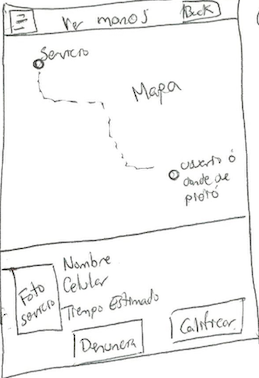 Ver manos
Back
Servicio
Mapa
usuario ó
donde se
pidió
Foto
servicio
Nombre
Celular
Tiempo Estimado
Denuncia
Calificar